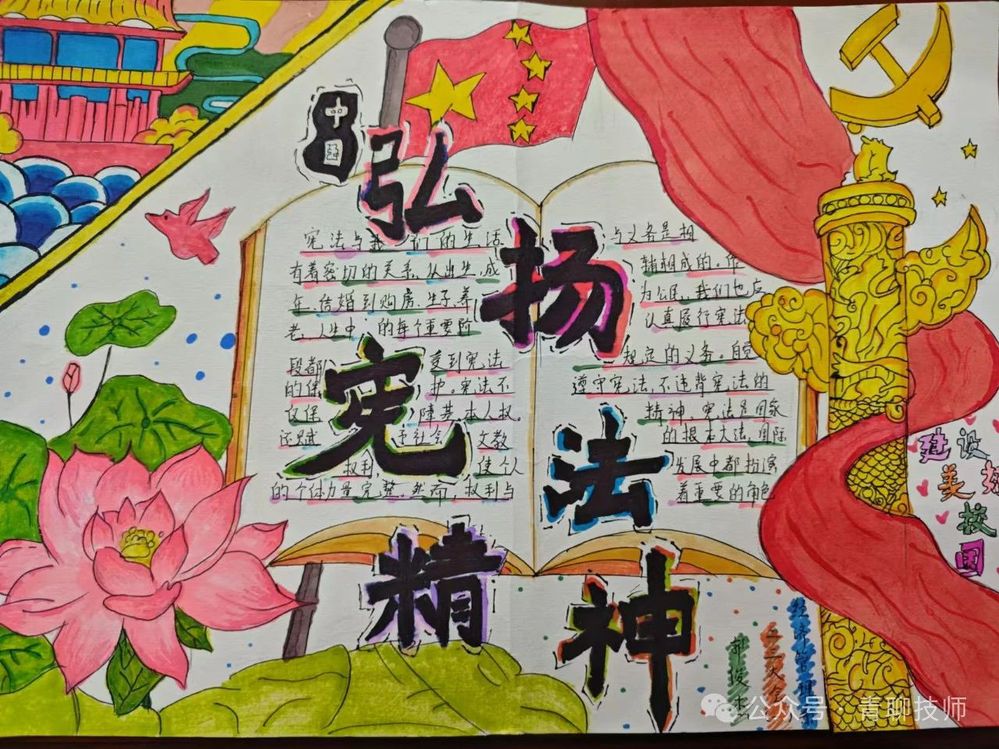 中国
弘扬宪法精神
宪法与我们的生活
有着密切的关系,从出生、成
年、结婚到购房、生子、养
老,人生中的每个重要阶
段都受到宪法
的保护。宪法不
仅保障基本人权,
还赋予社会、文教
权利,使个人
的个体力量完整。然而,权利与
与义务是相
辅相成的,作
为公民,我们也应
认真履行宪法
规定的义务。自觉
遵守宪法,不违背宪法的
精神,宪法是国家
的根本大法,国际
发展中都扮演
着重要的角色
建设
美好
校园
公众号 · 青聊技师